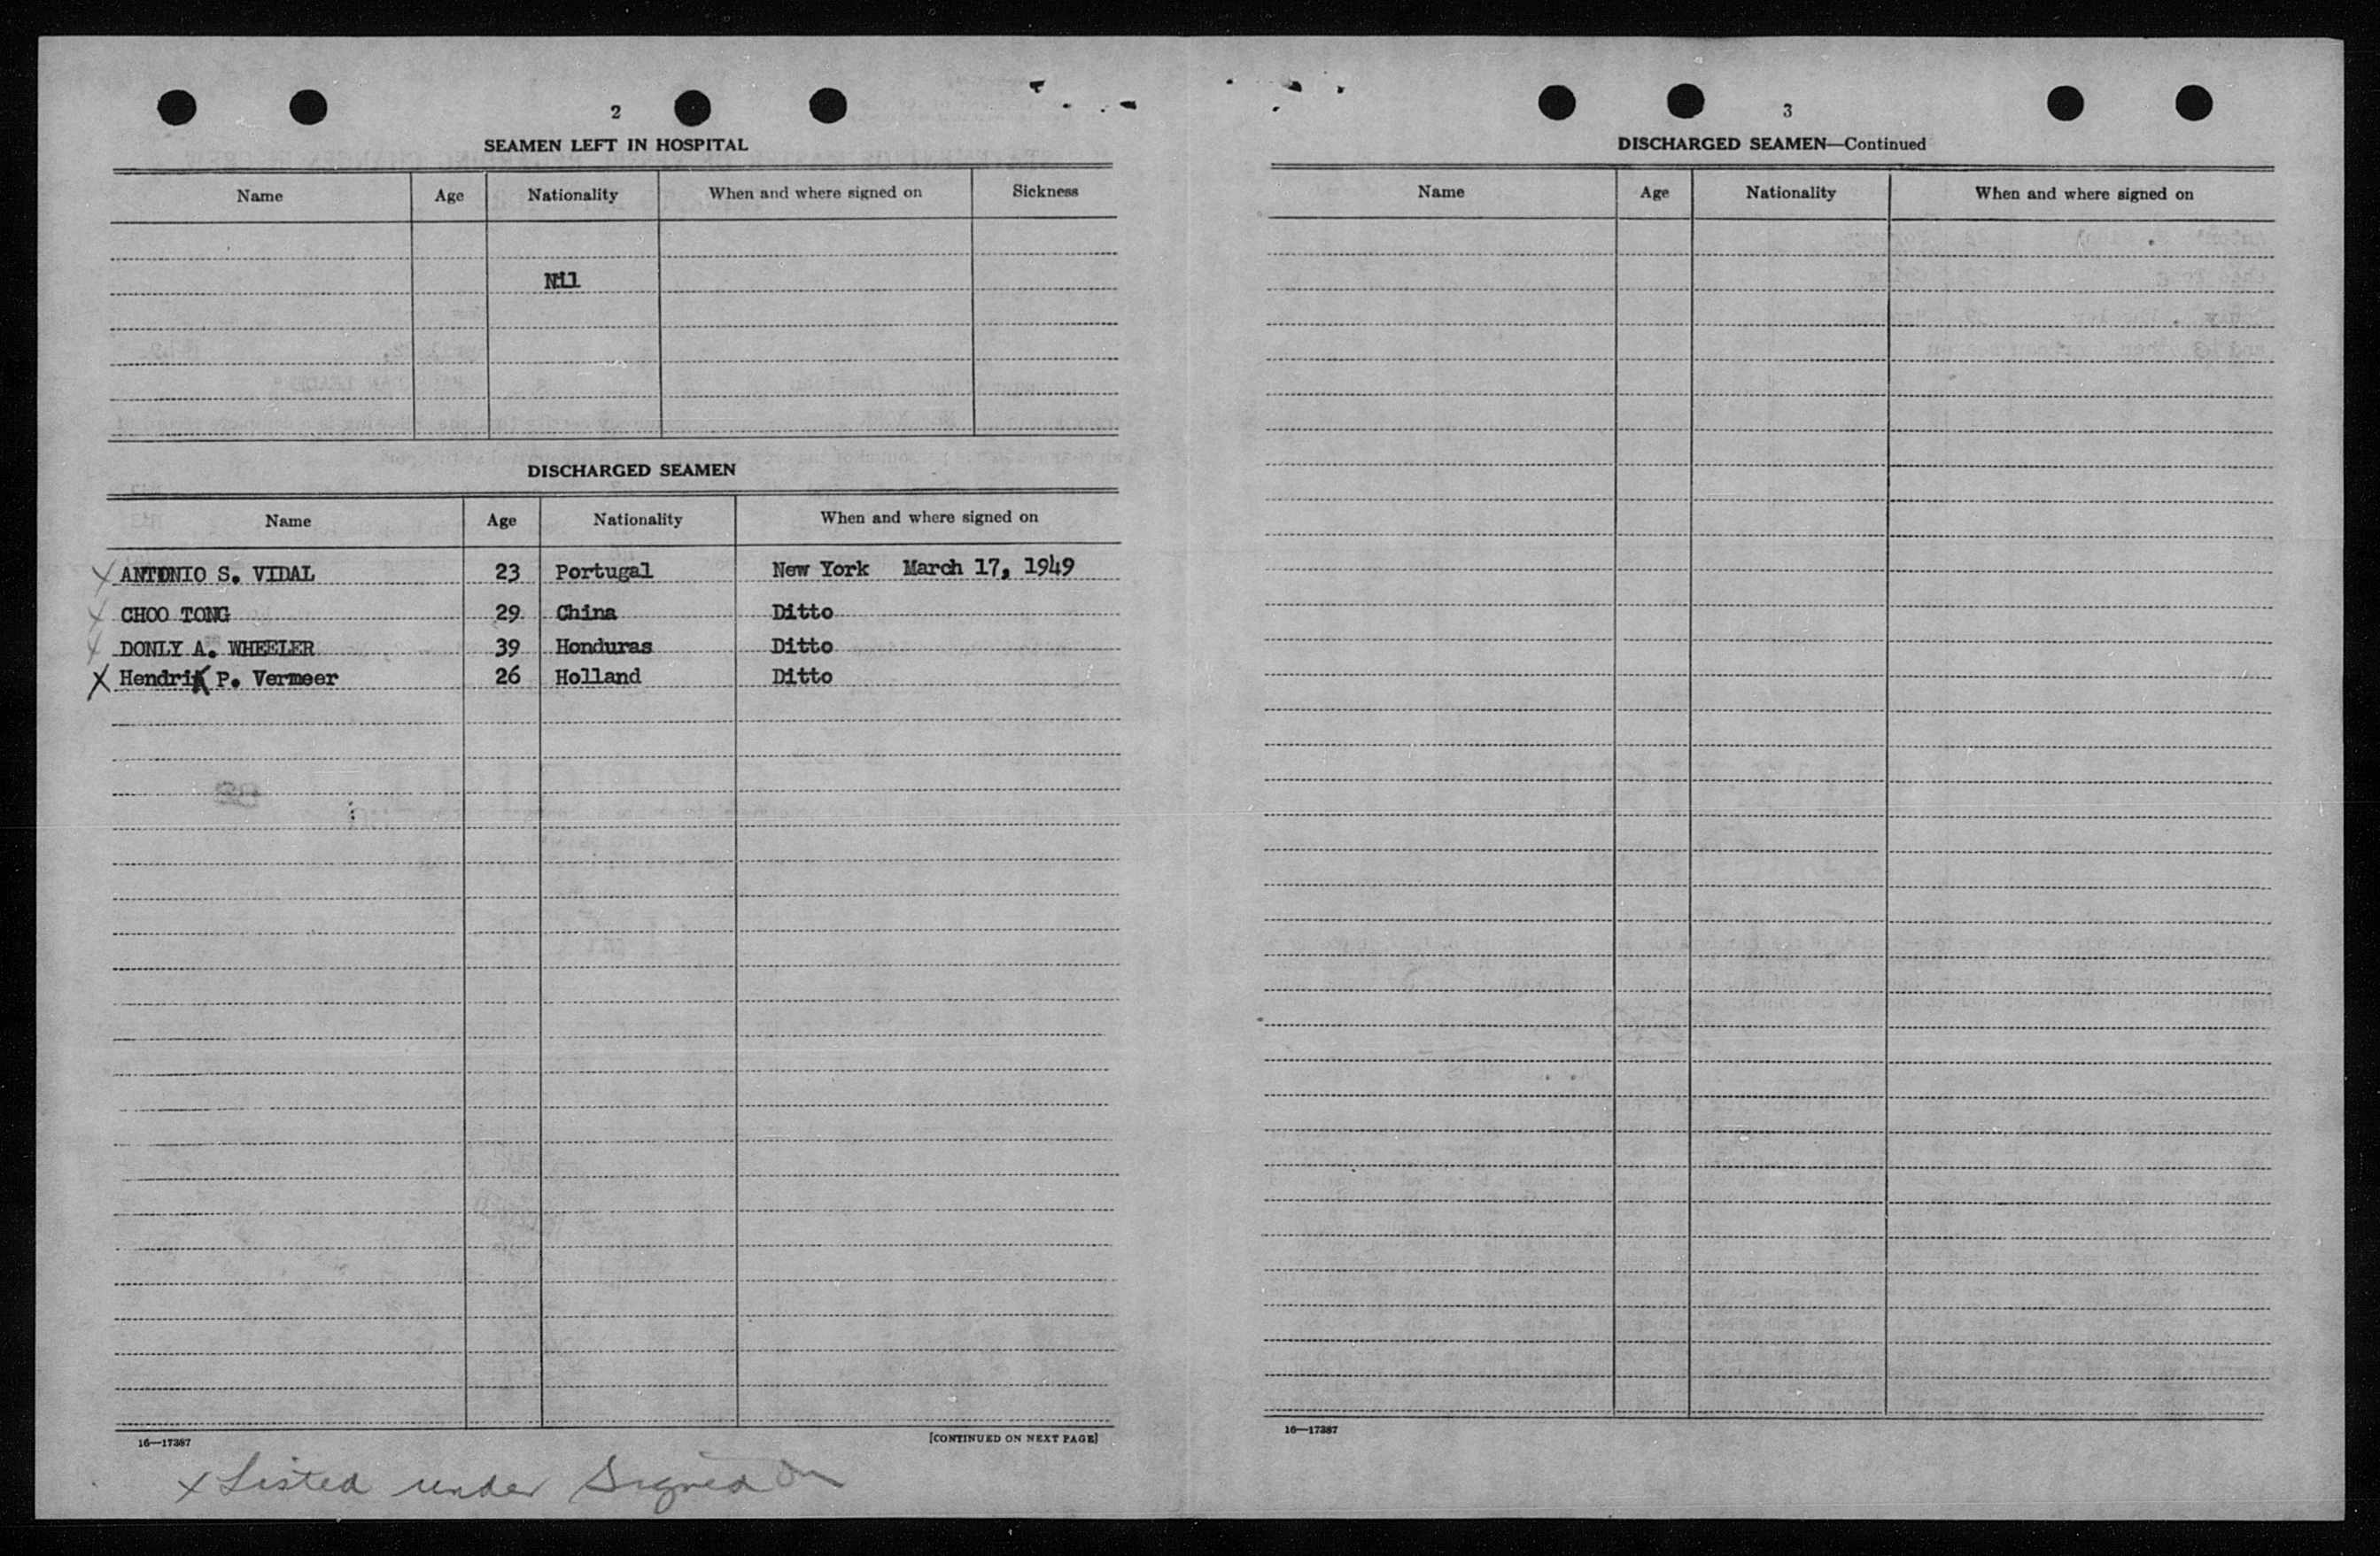 2
SEAMEN LEFT IN HOSPITAL
Name Age Nationality When and where signed on Sickness
Nil
DISCHARGED SEAMEN
Name Age Nationality When and where signed on
X ANTONIO S. VIDAL 23 Portugal New York March 17, 1949
X CHOO TONG 29 China Ditto
X DONLY A. WHEELER 39 Honduras Ditto
X Hendrik P. Vermeer 26 Holland Ditto
16—17387 [CONTINUED ON NEXT PAGE]
x Listed under Signed On
3
DISCHARGED SEAMEN—Continued
Name Age Nationality When and where signed on
16—17387